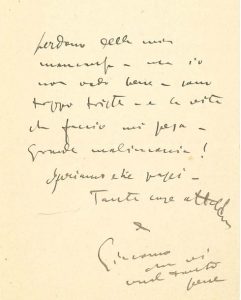 perdono della mia
mancanza - ma io
non vado bene - sono
troppo triste - e la vita
che faccio mi pesa -
grande malinconia!
Speriamo che passi -
Tante cose a
Giacomo
che vi
vuol tanto
bene